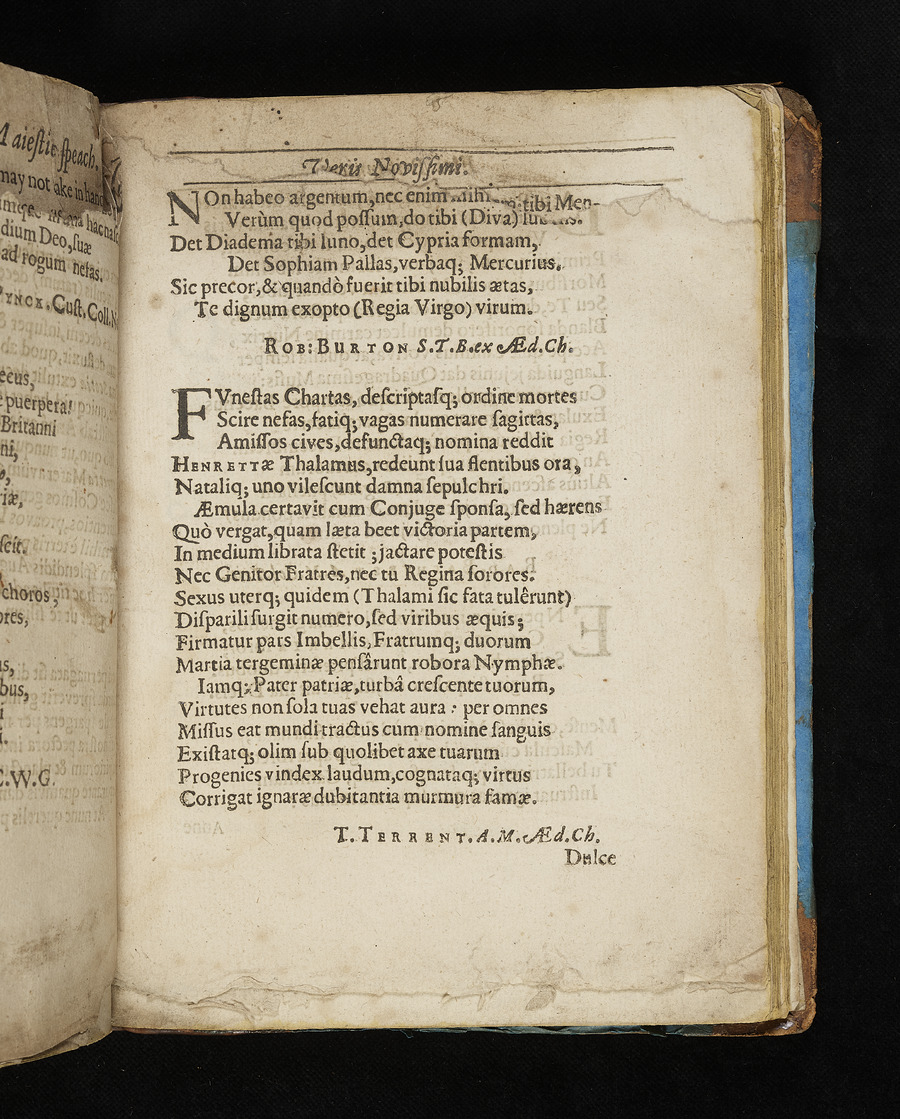 Maiestie speach.
may not ake in hand
dium Deo, suæ
ad rogum nefas.
PYNCK. Cust. Coll. N
ecus,
puerpera!
Britanni
ni,
iæ,
scit.
choros,
ores,
us,
bus,
i
i.
C.W.G.
Veris Novissimi.
NOn habeo argentum, nec enim mihi tibi Men-
Verùm quod possum, do tibi (Diva)
Det Diadema tibi Iuno, det Cypria formam,
Det Sophiam Pallas, verbaq; Mercurius.
Sic precor, & quandò fuerit tibi nubilis ætas,
Te dignum exopto (Regia Virgo) virum.
ROB: BURTON S.T.B. ex Æd. Ch.
FVnestas Chartas, descriptasq; ordine mortes
Scire nefas, fatiq; vagas numerare sagittas,
Amissos cives, defunctaq; nomina reddit
HENRETTæ Thalamus, redeunt sua flentibus ora,
Nataliq; uno vilescunt damna sepulchri.
Æmula certavit cum Conjuge sponsa, sed hærens
Quò vergat, quam læta beet victoria partem,
In medium librata stetit; jactare potestis
Nec Genitor Fratres, nec tu Regina sorores.
Sexus uterq; quidem (Thalami sic fata tulêrunt)
Dispari li surgit numero, sed viribus æquis;
Firmatur pars Imbellis, Fratrumq; duorum
Martia tergeminæ pensârunt robora Nymphæ.
Iamq; Pater patriæ, turbâ crescente tuorum,
Virtutes non sola tuas vehat aura: per omnes
Missus eat mundi tractus cum nomine sanguis
Existatq; olim sub quolibet axe tuarum
Progenies vindex laudum, cognataq; virtus
Corrigat ignaræ dubitantia murmura famæ.
T. TERRENT. A.M. Æd. Ch.
Dulce